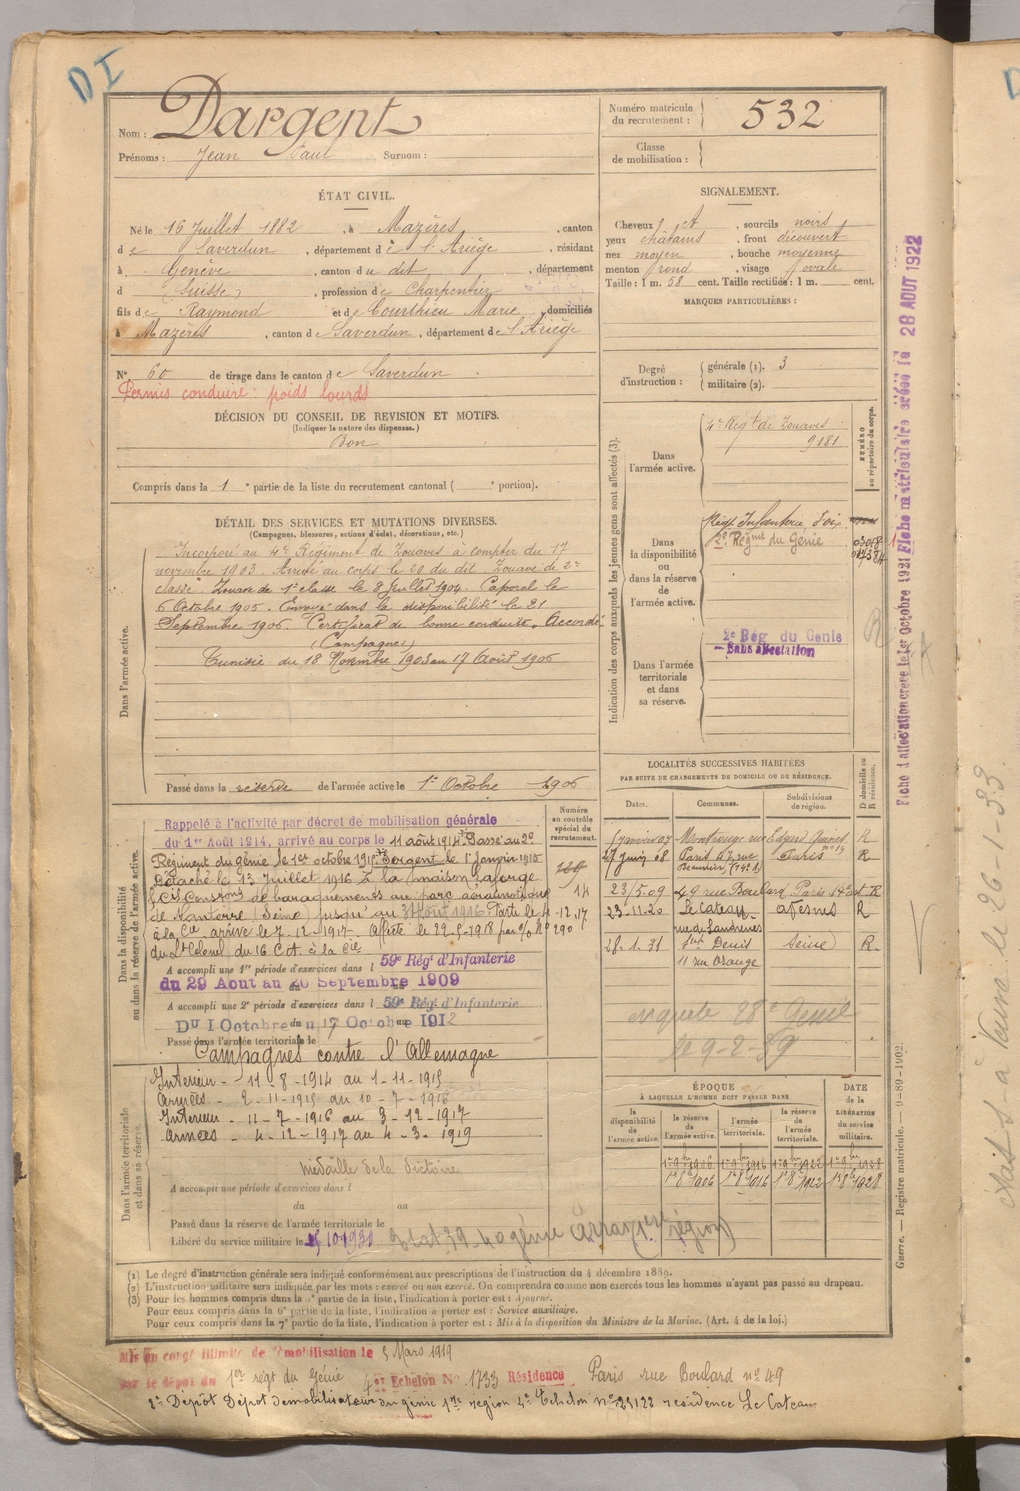 DI
Nom : Dargent
Prénoms : Jean Paul Surnom :
Numéro matricule du recrutement : 532
Classe de mobilisation :
ÉTAT CIVIL.
Né le 16 Juillet 1882, à Mazères, canton
de Saverdun, département de l'Ariège, résidant
à Genève, canton du dit, département
d (Suisse), profession de Charpentier
fils de Raymond et de Courthieu Marie domiciliés
à Mazères, canton de Saverdun, département de l'Ariège
N° 60 de tirage dans le canton de Saverdun
Permis conduire : poids lourds
DÉCISION DU CONSEIL DE REVISION ET MOTIFS.
(Indiquer la nature des dispenses.)
Bon
Compris dans la 1e partie de la liste du recrutement cantonal ( e portion).
SIGNALEMENT.
Cheveux et, sourcils noirs
yeux châtains, front découvert
nez moyen, bouche moyenne
menton rond, visage ovale
Taille : 1 m. 58 cent. Taille rectifiée : 1 m. cent.
MARQUES PARTICULIÈRES :
Degré d'instruction : générale (1). 3
militaire (2).
Indication des corps auxquels les jeunes gens sont affectés (3).
NUMÉRO au répertoire du corps.
Dans l'armée active.
4e Régt de Zouaves
9181
Dans la disponibilité ou dans la réserve de l'armée active.
Régt Infanterie Foix
2e Régmt du Génie
Dans l'armée territoriale et dans sa réserve.
2e Rég du Génie
Sans affectation
DÉTAIL DES SERVICES ET MUTATIONS DIVERSES.
(Campagnes, blessures, actions d'éclat, décorations, etc.)
Dans l'armée active.
Incorporé au 4e Régiment de Zouaves à compter du 17
novembre 1903. Arrivé au corps le 20 du dit. Zouave de 2e
classe. Zouave de 1e classe le 8 Juillet 1904. Caporal le
6 Octobre 1905. Envoyé dans la disponibilité le 21
Septembre 1906. Certificat de bonne conduite. Accordé
(Campagnes)
Tunisie du 18 Novembre 1903 au 17 Août 1906
Passé dans la réserve de l'armée active le 1er Octobre 1906
Dans la disponibilité ou dans la réserve de l'armée active.
Numéro au contrôle spécial du recrutement.
Rappelé à l'activité par décret de mobilisation générale
du 1er Août 1914, arrivé au corps le 11 août 1914. Passé au 2e
Régiment du génie le 1er octobre 1915. Sergent le 1er Janvier 1915
Détaché le 13 Juillet 1916 à la maison
de baraquements au parc aéronautique
de Nanterre (Seine) jusqu'au 31 août 1916
arrivé le 7-12-1917. Affecté le 22-5-1918
A accompli une 1re période d'exercices dans l 59e Rég' d'Infanterie
du 29 Aout au 20 Septembre 1909
A accompli une 2e période d'exercices dans l 59e Rég' d'Infanterie
Du 1 Octobre au 17 Octobre 1912
Passé dans l'armée territoriale le
Campagnes contre l'Allemagne
Dans l'armée territoriale et dans sa réserve.
Interieur - 11-8-1914 au 1-11-1915
Armées - 2-11-1915 au 10-7-1916
Interieur - 11-7-1916 au 3-12-1917
Armées - 4-12-1917 au 4-3-1919
Médaille de la Victoire
A accompli une période d'exercices dans l
du au
Passé dans la réserve de l'armée territoriale le
Libéré du service militaire le
LOCALITÉS SUCCESSIVES HABITÉES
PAR SUITE DE CHANGEMENTS DE DOMICILE OU DE RÉSIDENCE.
Dates. Communes. Subdivisions de région. D domicile ou R résidence.
6 janvier 07 Montrouge rue Edgar Quinet R
27 juin 08 Paris 67 rue Paris R
23/5-09 49 rue Boulard Paris 14e art R
23-11-20 Le Cateau Avesnes R
rue de Landrecies
28-1-31 Deuil Seine R
11 rue Orange
enquete 28e Génie
le 9-2-39
ÉPOQUE
À LAQUELLE L'HOMME DOIT PASSER DANS
DATE de la LIBÉRATION du service militaire.
la disponibilité de l'armée active.
la réserve de l'armée active.
l'armée territoriale.
la réserve de l'armée territoriale.
1er 9bre 1906 1er 9bre 1916 1er 9bre 1922 1er 9bre 1928
1er 8bre 1906 1er 8bre 1916 1er 8bre 1922 1er 8bre 1928
(1) Le degré d'instruction générale sera indiqué conformément aux prescriptions de l'instruction du 4 décembre 1889.
(2) L'instruction militaire sera indiquée par les mots : exercé ou non exercé. On comprendra comme non exercés tous les hommes n'ayant pas passé au drapeau.
(3) Pour les hommes compris dans la 5e partie de la liste, l'indication à porter est : Ajourné.
Pour ceux compris dans la 6e partie de la liste, l'indication à porter est : Service auxiliaire.
Pour ceux compris dans la 7e partie de la liste, l'indication à porter est : Mis à la disposition du Ministre de la Marine. (Art. 4 de la loi.)
Mis en congé illimité de démobilisation le 5 Mars 1919
par le dépôt du 1er régt du Génie 4er Echelon No 1733 Résidence Paris rue Boulard n° 49
Dépôt démobilisateur du génie 1re région 4e Echelon n° 23122 résidence Le Cateau
Fiche d'affectation créée le 1er Octobre 1921 Fiche matriculaire créée le 28 AOUT 1922
Guerre. — Registre matricule. — 9-89-1902.